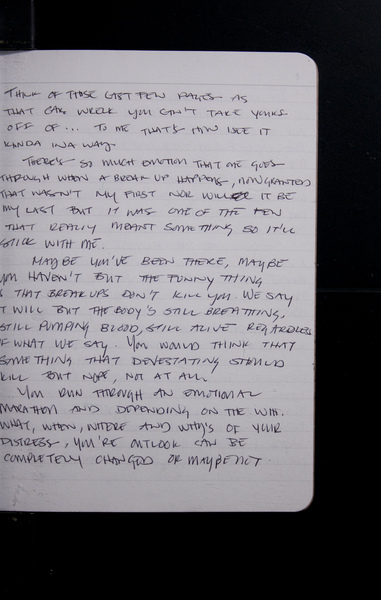 THINK OF THOSE LAST FEW PAGES AS
THAT CAR WRECK YOU CAN'T TAKE YOURS
OFF OF... TO ME THAT'S HOW I SEE IT
KINDA IN A WAY.
THERE'S SO MUCH EMOTION THAT ONE GOES
THROUGH WHEN A BREAK UP HAPPENS, NOW GRANTED
THAT WASN'T MY FIRST NOR WILL IT BE
MY LAST BUT IT WAS ONE OF THE FEW
THAT REALLY MEANT SOMETHING SO IT'LL
STICK WITH ME.
MAYBE YOU'VE BEEN THERE, MAYBE
YOU HAVEN'T BUT THE FUNNY THING
IS THAT BREAK UPS DON'T KILL YOU. WE SAY
IT WILL BUT THE BODY'S STILL BREATHING,
STILL PUMPING BLOOD, STILL ALIVE REGARDLESS
OF WHAT WE SAY. YOU WOULD THINK THAT
SOMETHING THAT DEVESTATING SHOULD
KILL BUT NOPE, NOT AT ALL.
YOU RUN THROUGH AN EMOTIONAL
MARATHON AND DEPENDING ON THE WHO,
WHAT, WHEN, WHERE AND WHY'S OF YOUR
DISTRESS, YOU'RE OUTLOOK CAN BE
COMPLETELY CHANGED OR MAYBE NOT.